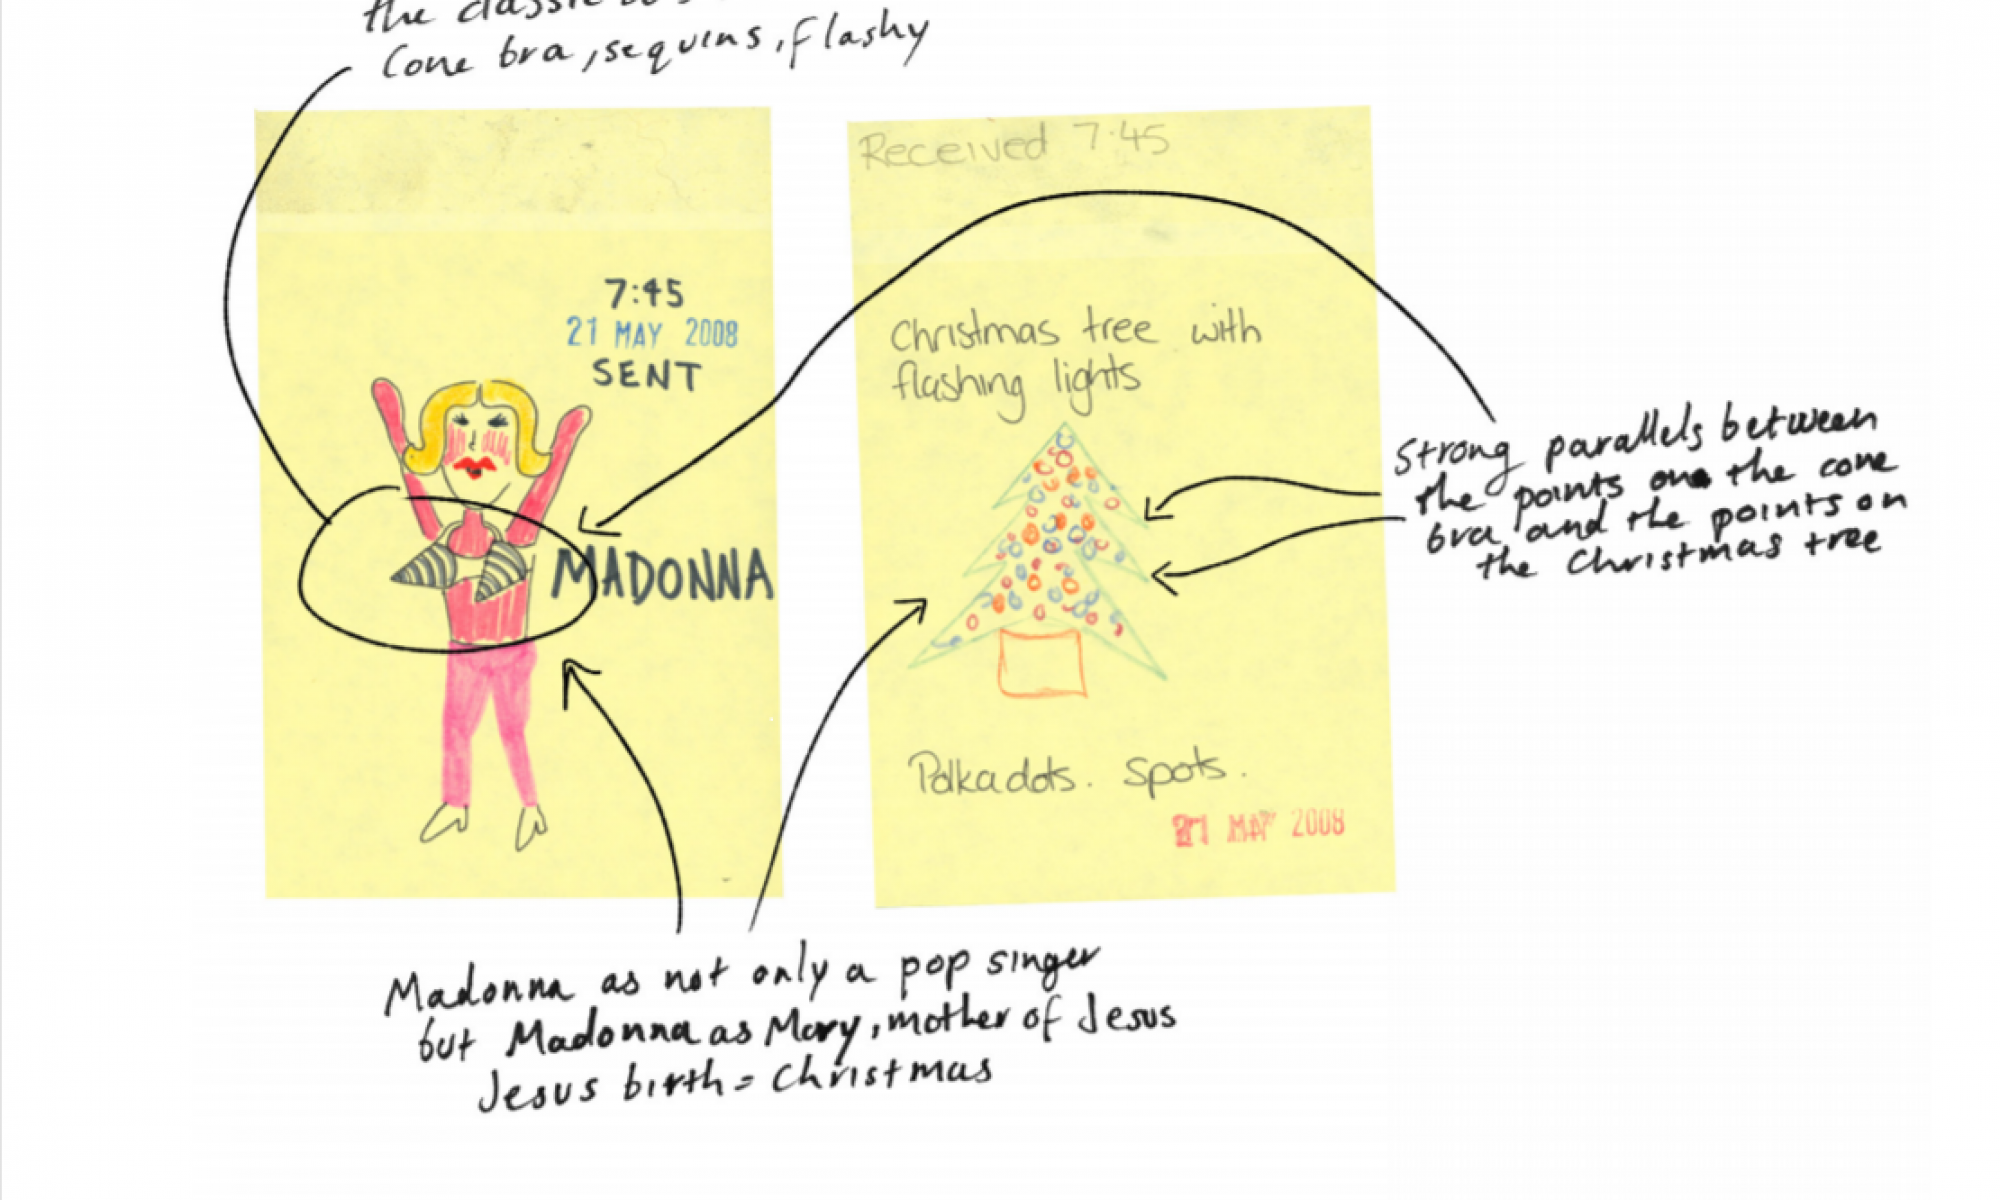 the classic
Cone bra, sequins, flashy
7:45
21 MAY 2008
SENT
MADONNA
Received 7.45
Christmas tree with
flashing lights
Polkadots. Spots.
21 MAY 2008
Strong parallels between
the points on the cone
bra and the points on
the Christmas tree
Madonna as not only a pop singer
but Madonna as Mary, mother of Jesus
Jesus birth = Christmas